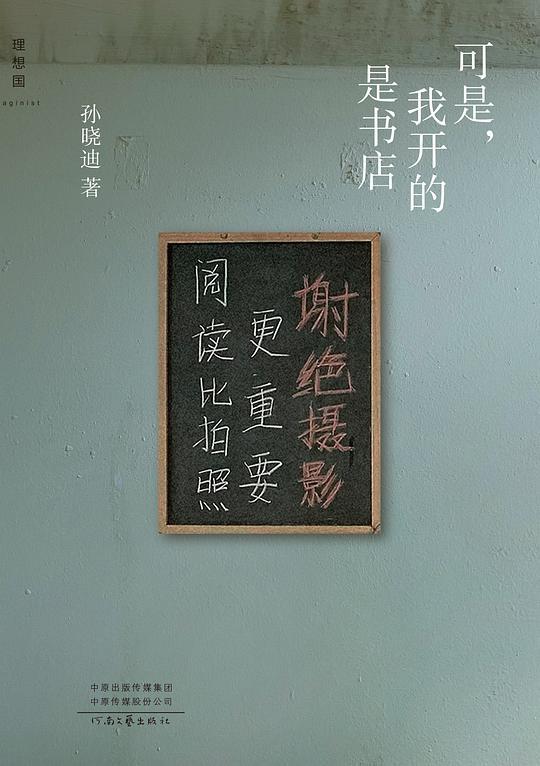 可是，
我开的
是书店
孙晓迪 著
理想国
aginist
阅读比拍照
更重要
谢绝摄影
中原出版传媒集团
中原传媒股份公司
河南文艺出版社